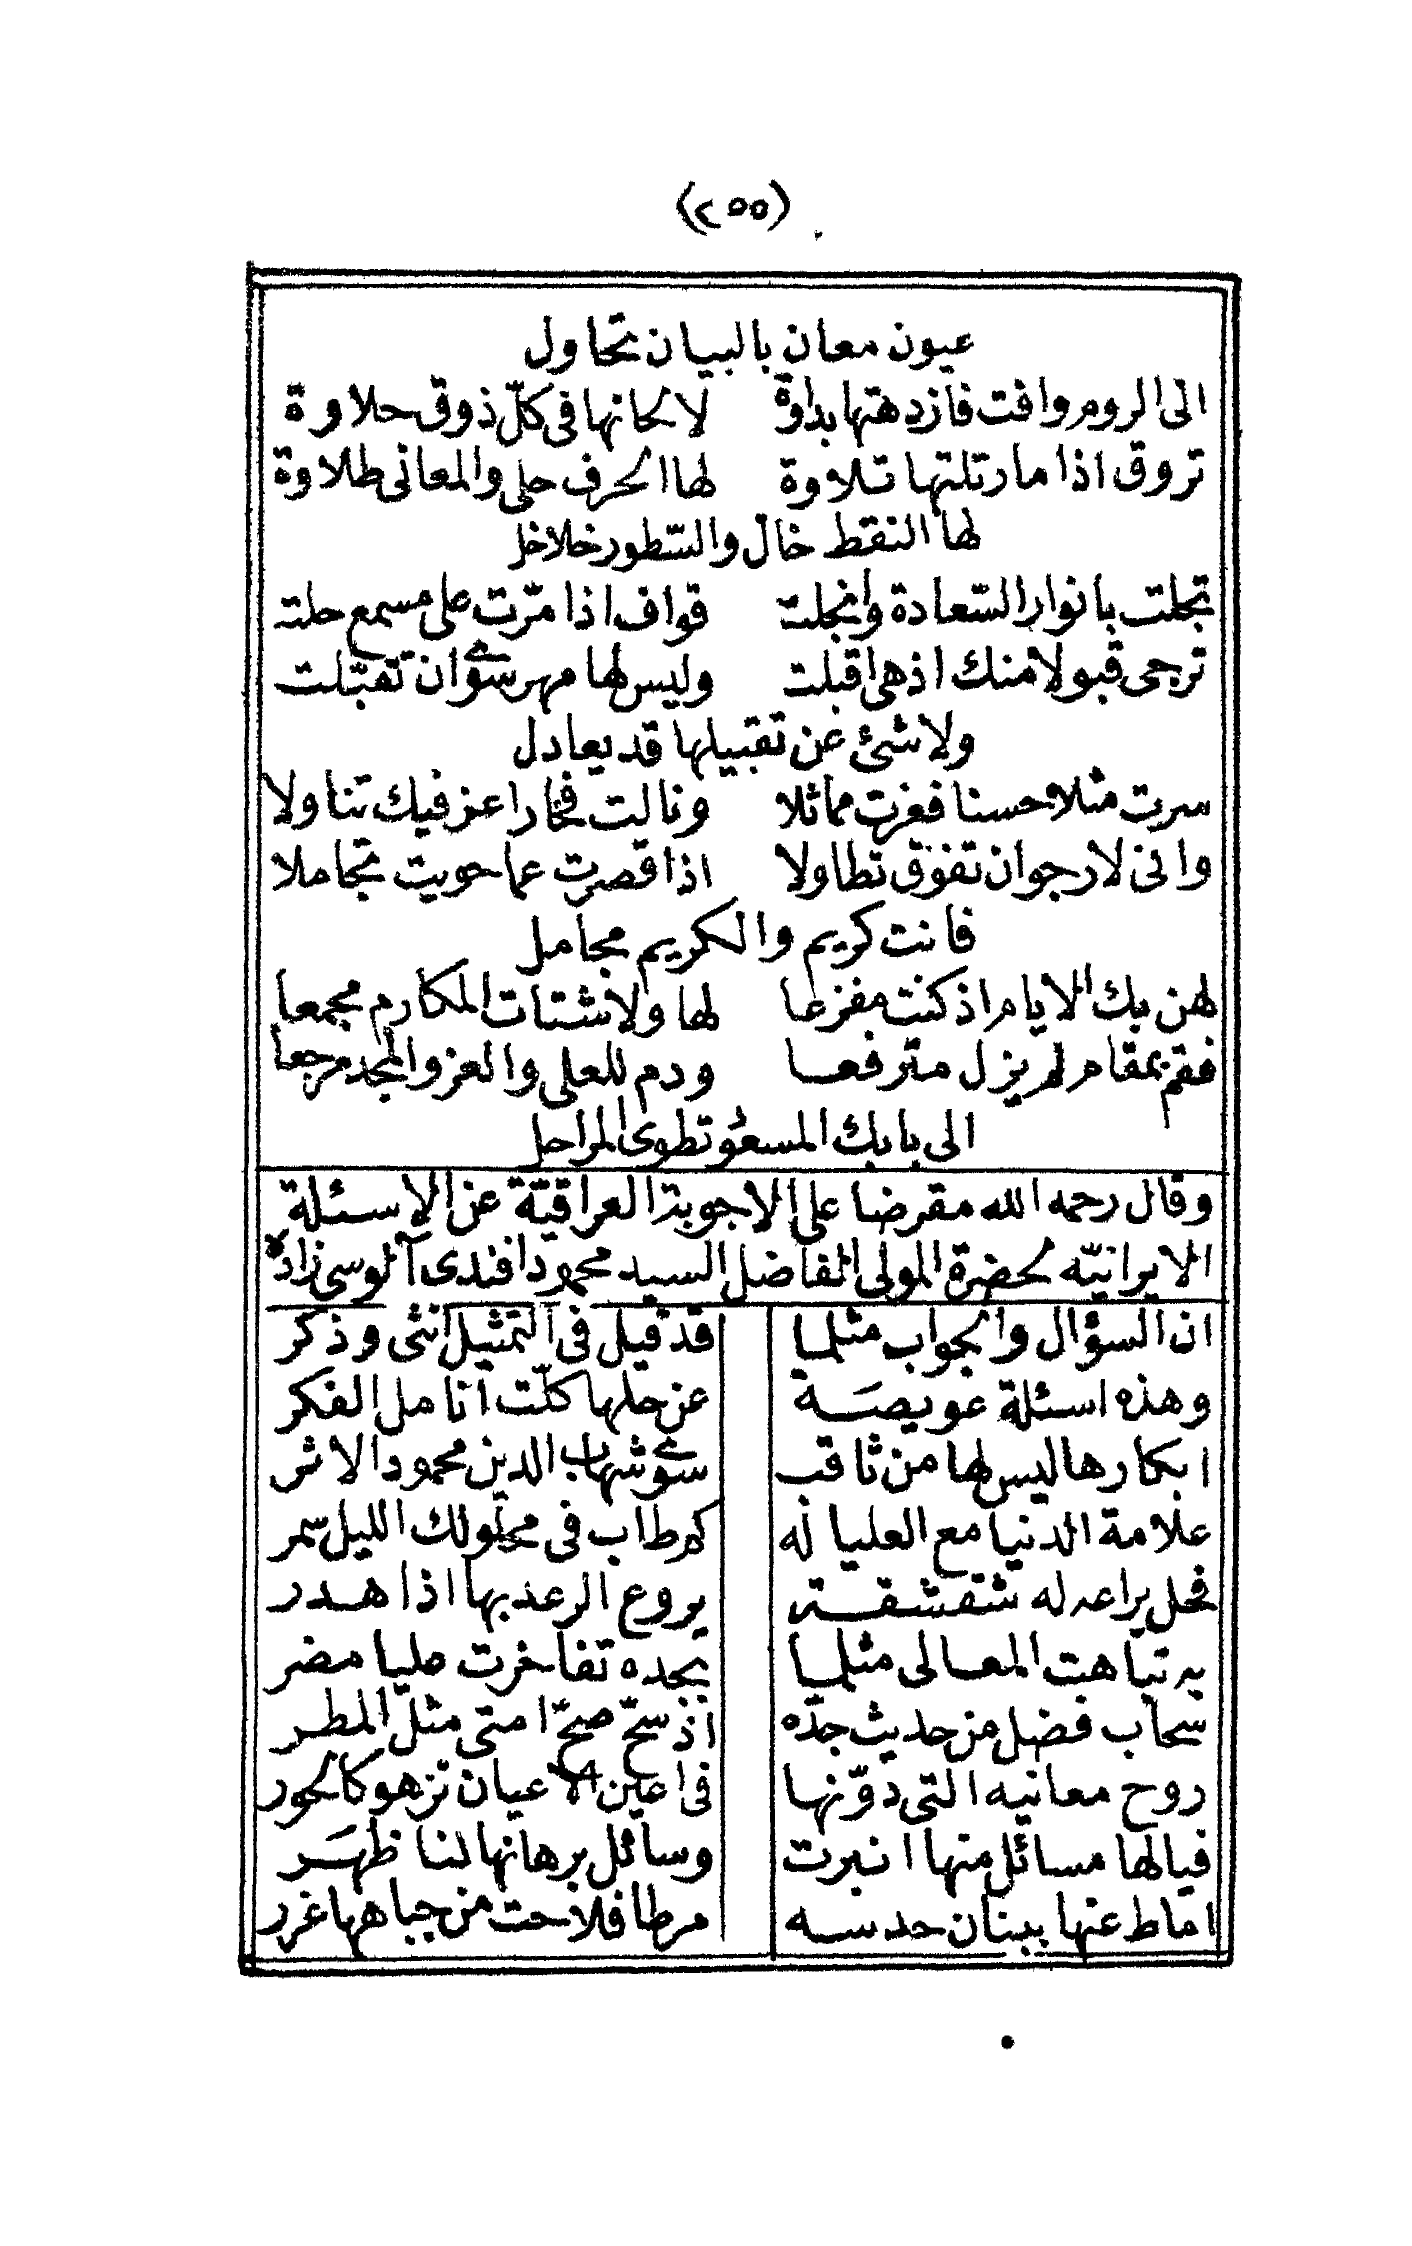 (٢٥٥)
عيون معان بالبيان تحاول
الى الروم وافت فازدهتها بداوة لالحانها فى كلّ ذوق حلاوة
تروق اذا ما رتلتها تلاوة لها الحرف حلى والمعانى طلاوة
لها النقط خال والسّطور خلاخل
تجلت بانوار السّعادة وانجلت قواف اذا مرّت على مسمع حلت
ترجى قبولا منك اذهى اقبلت وليس لها مهر سوى ان تقبّلت
ولا شئ عن تقبيلها قد يعادل
سرت مثلا حسنا فعزت مماثلا ونالت فخارا عز فيك تناولا
وانى لارجو ان تفوق تطاولا اذا قصرت عما حويت تجاملا
فانت كريم والكريم مجامل
لهن بك الايام اذ كنت مفزعا لها ولاشتات المكارم مجمعا
فقم بمقام لم يزل مترفعا ودم للعلى والعز والمجد مرجعا
الى بابك المسعود تطوى المراحل
وقال رحمه الله مقرضا على الاجوبة العراقيّة عن الاسئلة
الايرانيّه لحضرة المولى الفاضل السيد محمود افندى آلوسى زاده
ان السؤال والجواب مثلما قد قيل فى التمثيل انثى وذكر
وهذه اسئلة عويصة عن حلها كلّت انامل الفكر
ابكارها ليس لها من ثاقب سوى شهاب الدين محمود الاثر
علامة الدنيا مع العليا له كم طاب فى محلولك الليل سمر
فحل يراعه له شقشقة يروع الرعد بها اذا هدر
به تباهت المعالى مثلما بجده تفاخرت عليا مضر
سحاب فضل من حديث جدّه اذ سحّ صحّ امتى مثل المطر
روح معانيه التى دوّنها فى اعين الاعيان تزهو كالحور
فيالها مسائل منها انبرت وسائل برهانها لنا ظهر
اماط عنها ببنان حدسه مرطا فلاحت من جباهها غرر